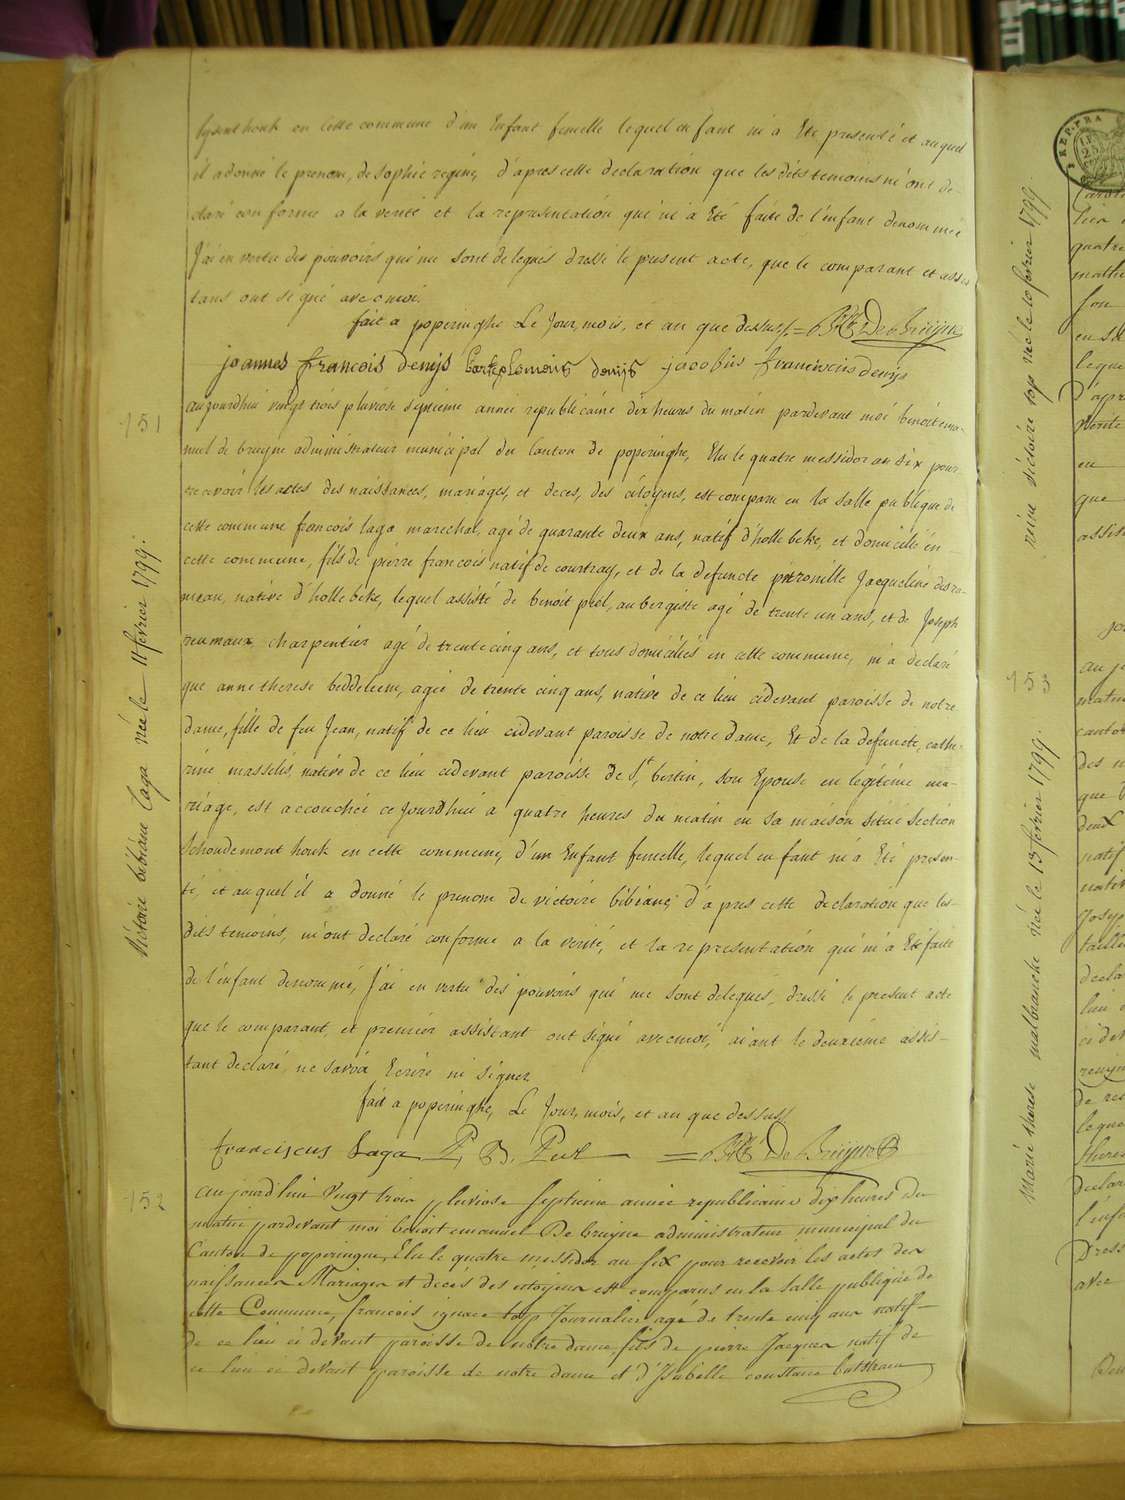 lysenthouk en cette commune d'un Enfant femelle lequel enfant m'a Eté presenté et auquel
il a donné le prenom, de Sophie regine, d'apres cette declaration que les dits temoins m'ont de-
claré conforme a la verité et la representation qui m'a Eté faite de l'enfant denommé
J'ai en vertu des pouvoirs qui me sont delegués dressé le present acte, que le comparant et assis
tans ont signé avec moi.
fait a poperinghe Le Jour, mois, et an que dessus. = De Bruÿne
joannes francois denijs denijs jacobus franciscus denijs
151
aujourdhui vingt trois pluviose septieme année republicaine dix heures du matin pardevant moi benoit ema-
nuel de bruyne administrateur municipal du Canton de poperinghe, Elu le quatre messidor an six pour
recevoir les actes des naissances, mariages, et deces, des citoyens, est comparu en la salle publique de
cette commune francois laga marechal, agé de quarante deux ans, natif d'hollebeke, et domicilié en
cette commune, fils de pierre francois natif de courtray, et de la defuncte petronille Jacqueline desra-
meau, native d'hollebeke, lequel assisté de benoit peel, aubergiste agé de trente un ans, et de Joseph
reumaux charpentier agé de trente cinq ans, et tous domiciliés en cette commune, m'a declaré
que anne therese beddeleem, agée de trente cinq ans, native de ce lieu cidevant paroisse de notre
dame, fille de feu Jean, natif de ce lieu cidevant paroisse de notre dame, Et de la defuncte, cathe-
rine masselis, native de ce lieu cidevant paroisse de St bertin, son Epouse en legitime ma-
riage, est accouchée ce jourdhui a quatre heures du matin en sa maison située section
Schoudemonthouk en cette commune, d'un Enfant femelle, lequel enfant m'a Eté presen-
té, et auquel il a donné le prenom de victoire bibiane; d'apres cette declaration que les-
dits temoins, m'ont declaré conforme a la verité, et la representation qui m'a Eté faite
de l'enfant denommé, J'ai en vertu des pouvoirs qui me sont delegués, dressé le present acte
que le comparant et premier assistant ont signé avec moi, aiant le deuxieme assis-
tant declaré ne savoir Ecrire ni signer
fait a poperinghe, Le Jour, mois, et an que dessus.
franciscus Laga = De Bruÿne
Victoire bibiane Laga née le 11 fevrier 1799.
152
aujourd'hui Vingt trois pluviose septieme année republicaine dix heures du
matin pardevant moi benoit emanuel De bruyne administrateur municipal du
Canton de poperingue, Elu le quatre messidor an six pour recevoir les actes des
naissances Mariages et deces des citoyens est comparu en la salle publique de
cette Commune, francois ignace top Journalier agé de trente cinq ans natif
de ce lieu ci devant paroisse de notre dame fils de pierre Jacques natif de
ce lieu ci devant paroisse de notre dame et d'Isabelle constance
top née le 10 fevrier 1799.
153
Marie therese malbranke née le 13 fevrier 1799.
quatre
d'apr
en
que
assis
au jo
matin
canton
que
deux
natif
nativ
Joseph
decla
lieu
ci dev
de
leque
there
declar
l'enf
Dress
avec